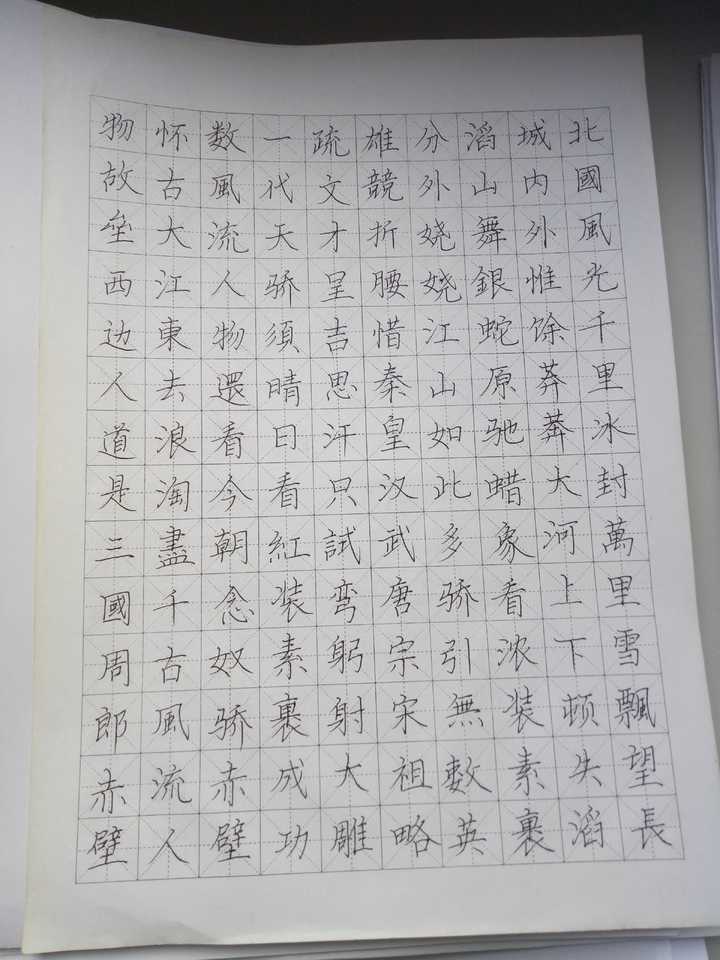 北國風光千里冰封萬里雪飄望長
城内外惟馀莽莽大河上下顿失滔
滔山舞銀蛇原驰蜡象看浓装素裹
分外娆娆江山如此多骄引無數英
雄競折腰惜秦皇汉武唐宗宋祖略
疏文才呈吉思汗只試弯躬射大雕
一代天骄須晴日看紅装素裹成功
数風流人物還看今朝念奴骄赤壁
怀古大江東去浪淘盡千古風流人
物故垒西边人道是三國周郎赤壁